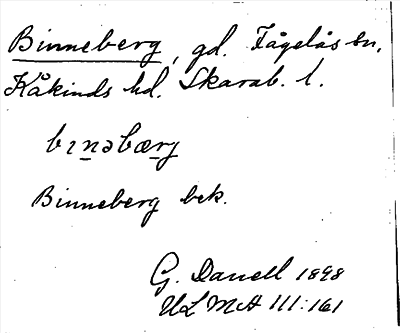 Binneberg, gd. Fågelås sn,
Kåkinds hd. Skarab. l.
bɪnəbærg
Binneberg bek.
G. Danell 1898
ULMA 111:161